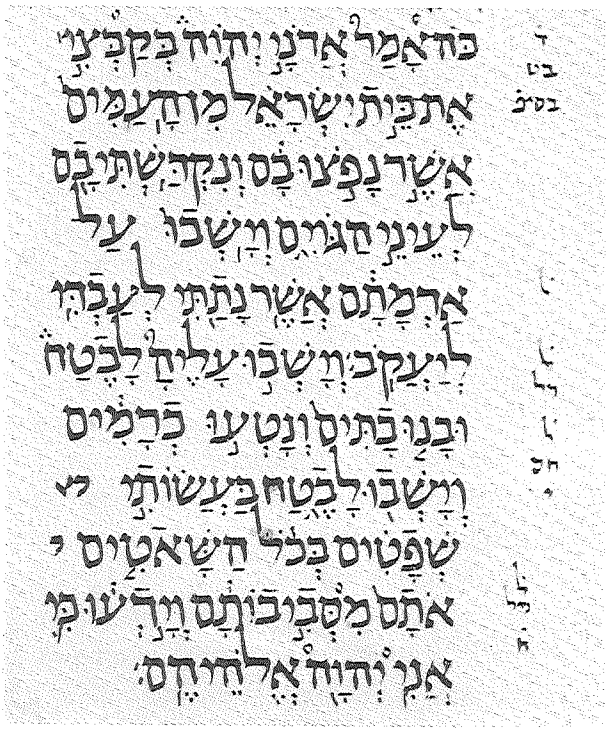 כה אמר אדני יהוה בקבצי
את בית ישראל מן העמים
אשר נפצו בם ונקדשתי בם
לעיני הגוים וישבו על
אדמתם אשר נתתי לעבדי
ליעקב׃ וישבו עליה לבטח
ובנו בתים ונטעו כרמים
וישבו לבטח בעשותי
שפטים בכל השאטים
אתם מסביבותם וידעו כי
אני יהוה אלהיהם׃